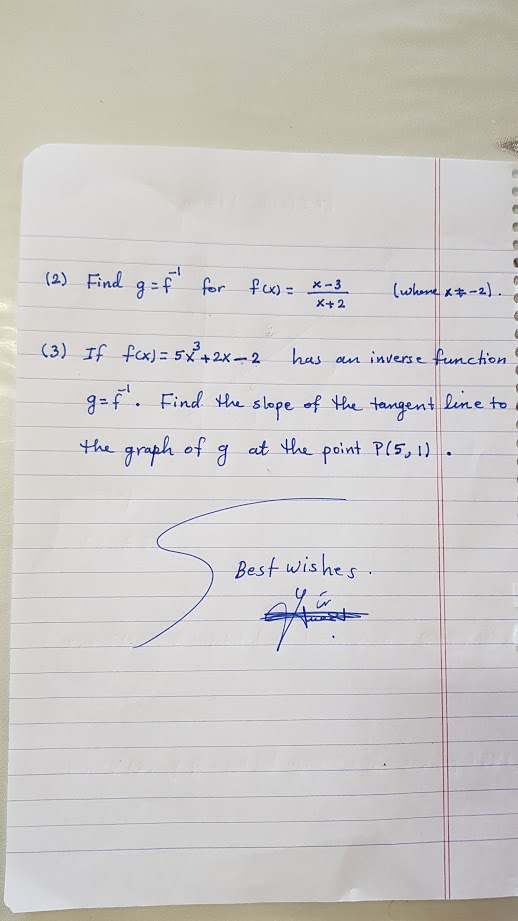 (2) Find g = f⁻¹ for f(x) = x-3 / x+2 (where x ≠ -2).
(3) If f(x) = 5x³ + 2x - 2 has an inverse function
g = f⁻¹. Find the slope of the tangent line to
the graph of g at the point P(5, 1).
Best wishes.